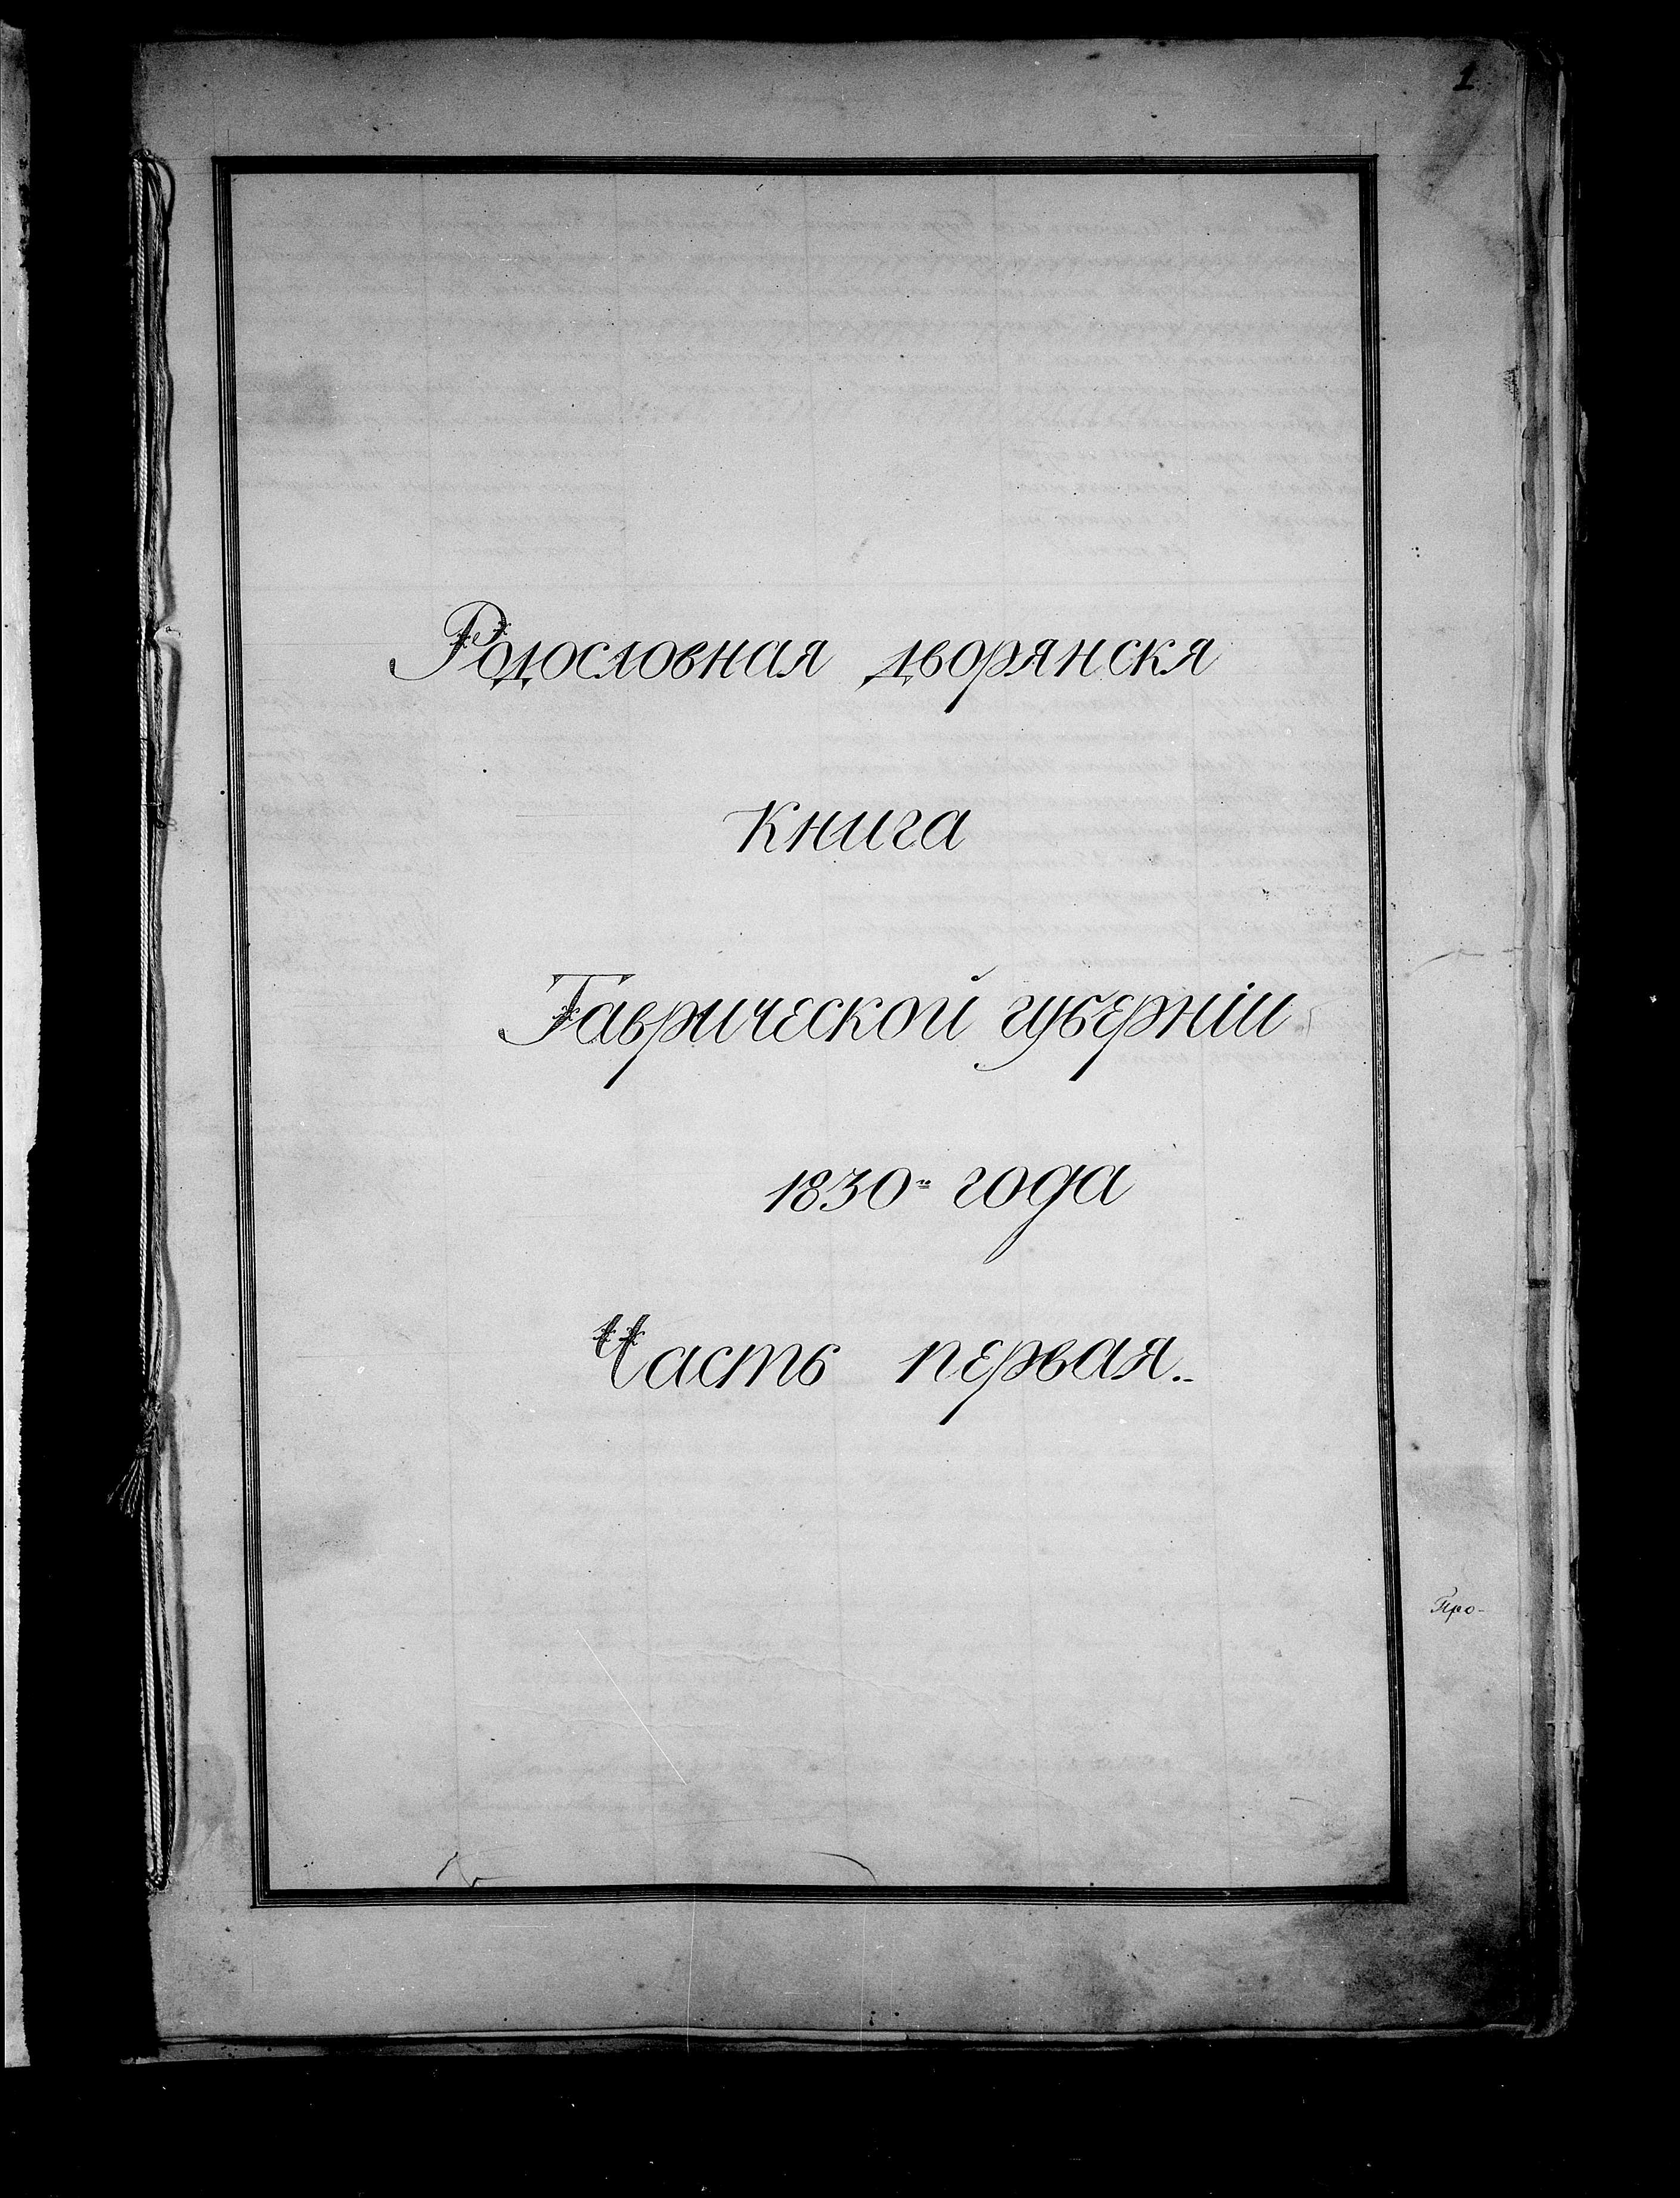 1
Родословная дворянскя
книга
Таврической губерніи
1830го года
Часть первая..
Про-